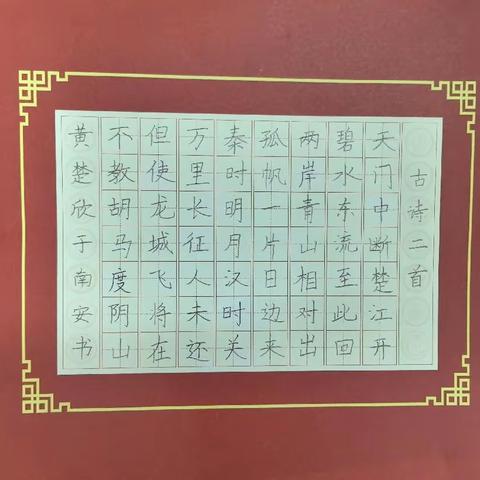 古诗二首
天门中断楚江开
碧水东流至此回
两岸青山相对出
孤帆一片日边来
秦时明月汉时关
万里长征人未还
但使龙城飞将在
不教胡马度阴山
黄楚欣于南安书